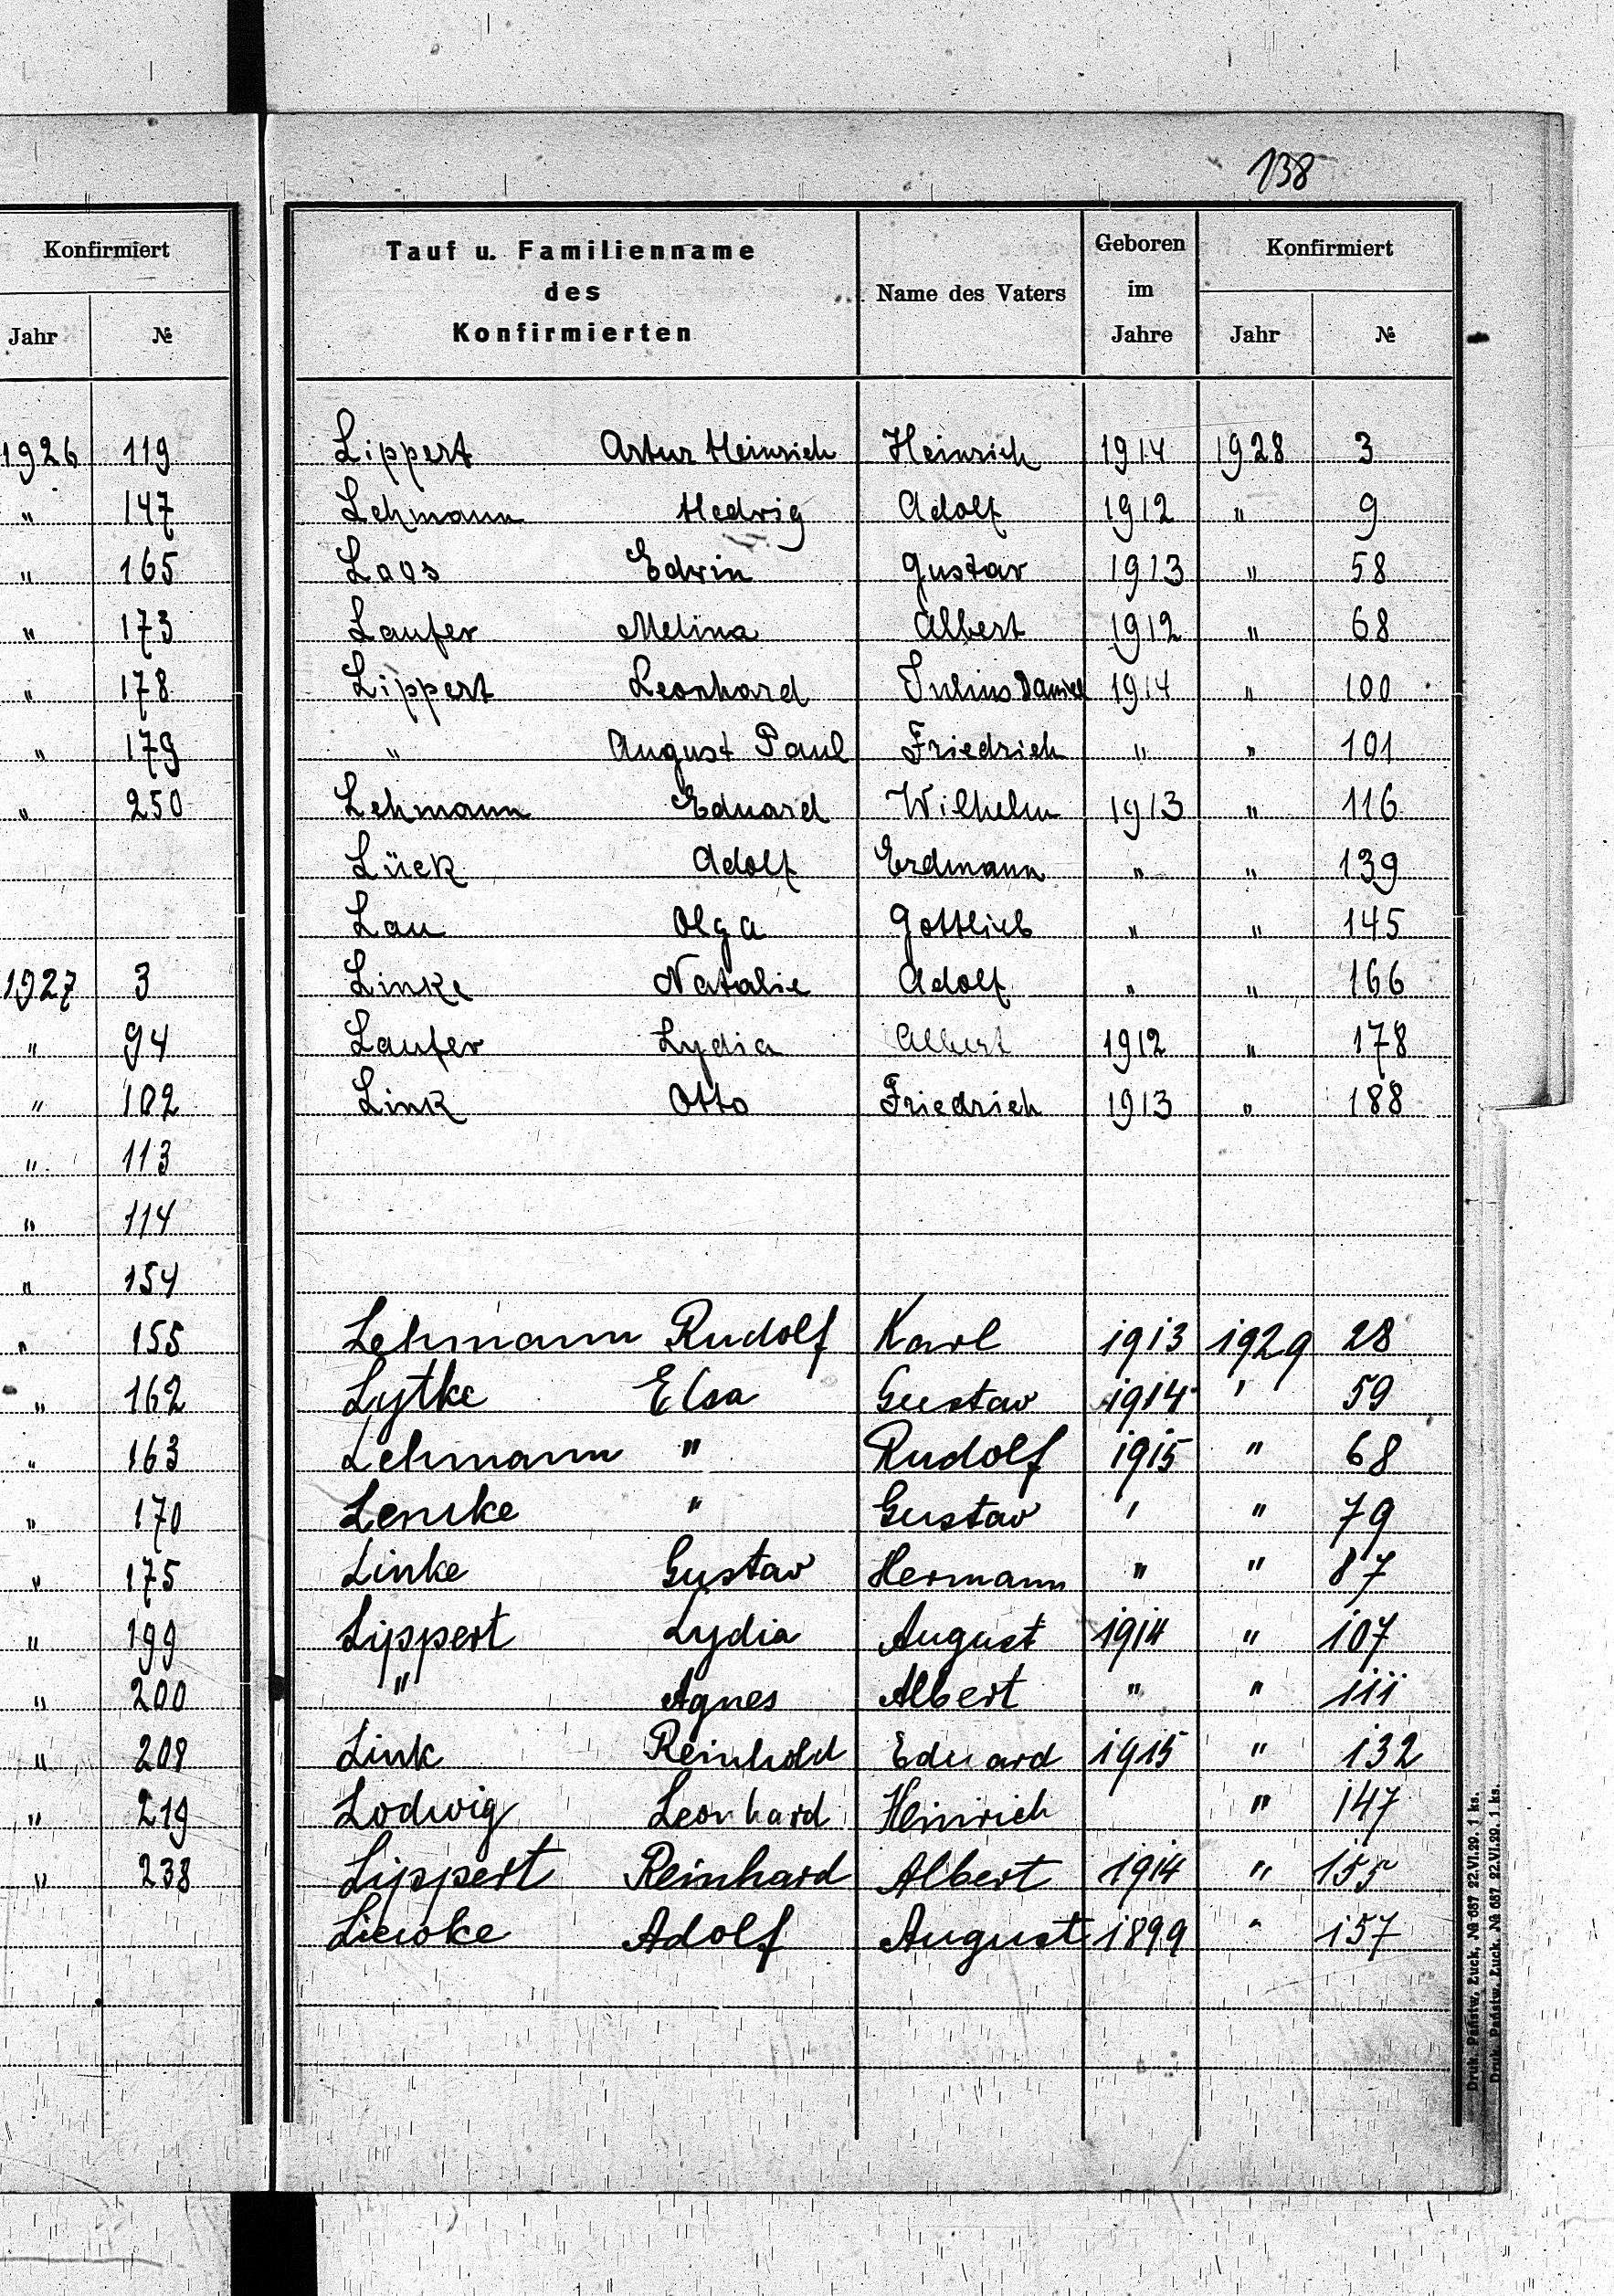 138
Konfirmiert
Jahr №
1926 119
" 147
" 165
" 173
" 178
" 179
" 250
1927 3
" 94
" 102
" 113
" 114
" 154
" 155
" 162
" 163
" 170
" 175
" 199
" 200
" 208
" 219
" 238
Tauf u. Familienname des Konfirmierten Name des Vaters Geboren im Jahre Konfirmiert Jahr №
Lippert Artur Heinrich Heinrich 1914 1928 3
Lehmann Hedwig Adolf 1912 " 9
Laos Edwin Gustav 1913 " 58
Laufer Melina Albert 1912 " 68
Lippert Leonhard Julius Daniel 1914 " 100
" August Paul Friedrich " " 101
Lehmann Eduard Wilhelm 1913 " 116
Lück Adolf Erdmann " " 139
Lau Olga Gottlieb " " 145
Linke Natalie Adolf " " 166
Laufer Lydia Albert 1912 " 178
Link Otto Friedrich 1913 " 188
Lehmann Rudolf Karl 1913 1929 28
Lytke Elsa Gustav 1914 " 59
Lehmann " Rudolf 1915 " 68
" Gustav " " 79
Linke Gustav Hermann " " 87
Lippert Lydia August 1914 " 107
" Agnes Albert " " 111
Link Reinhold Eduard 1915 " 132
Lodwig Leonhard Heinrich " 147
Lippert Reinhard Albert 1914 " 155
Adolf August 1899 " 157
Druk. Państw. Łuck, № 687 22.VI.29. 1 ks.
Druk. Państw. Łuck, № 687 22.VI.29. 1 ks.